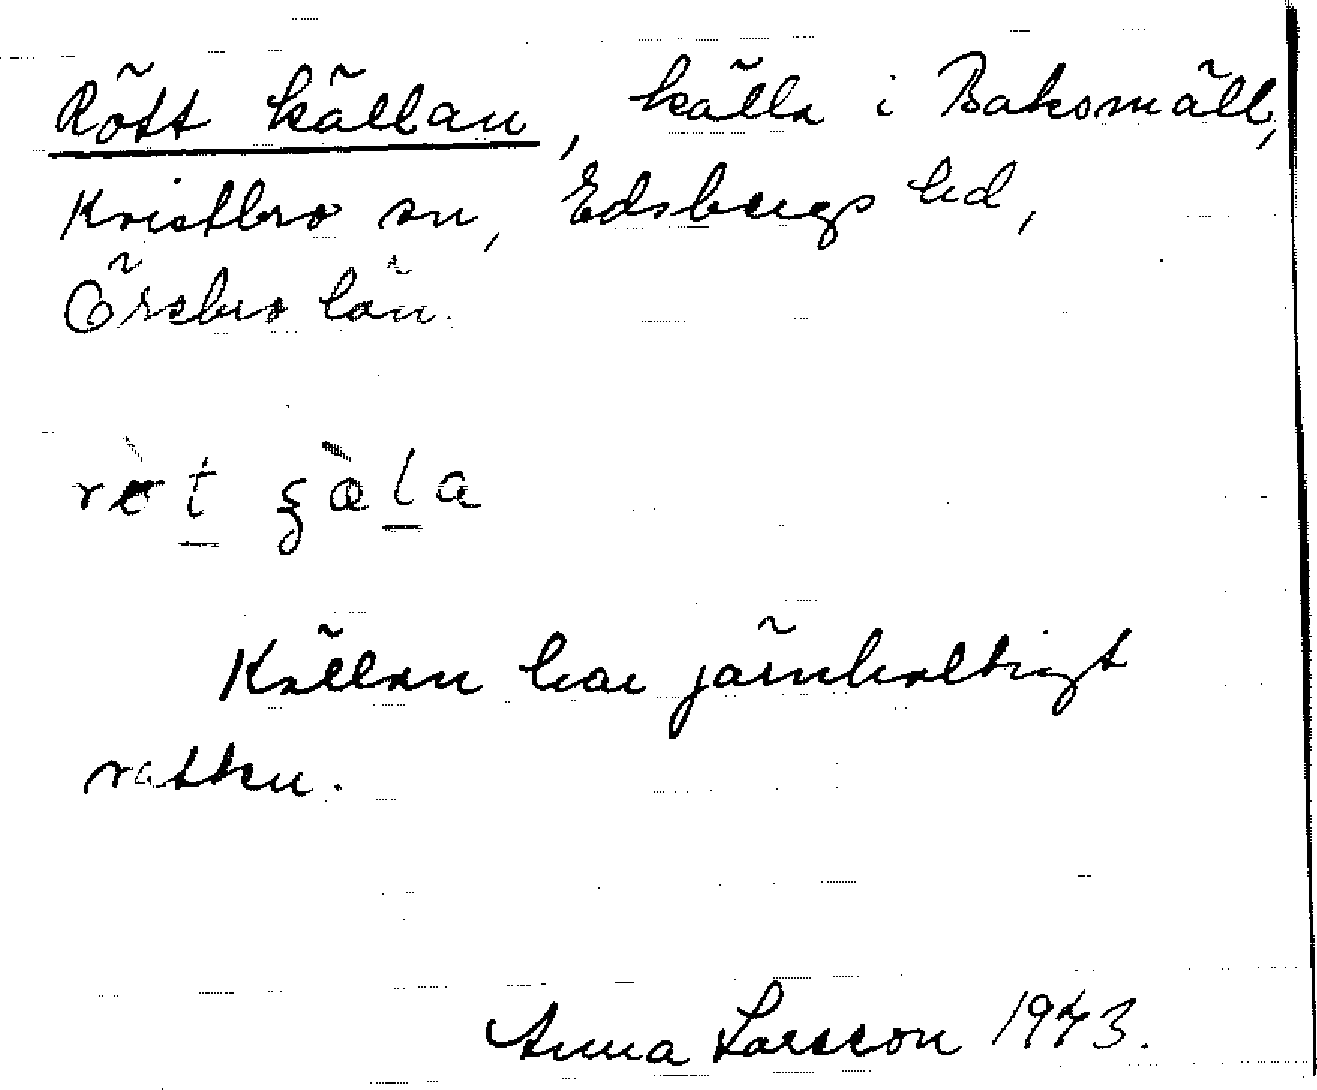 Rött källan, källa i Baksmäll,
Kvistbro sn, Edsbergs hd,
Örebro län.
Källan har järnhaltigt
vatten.
Anna Larsson 1973.